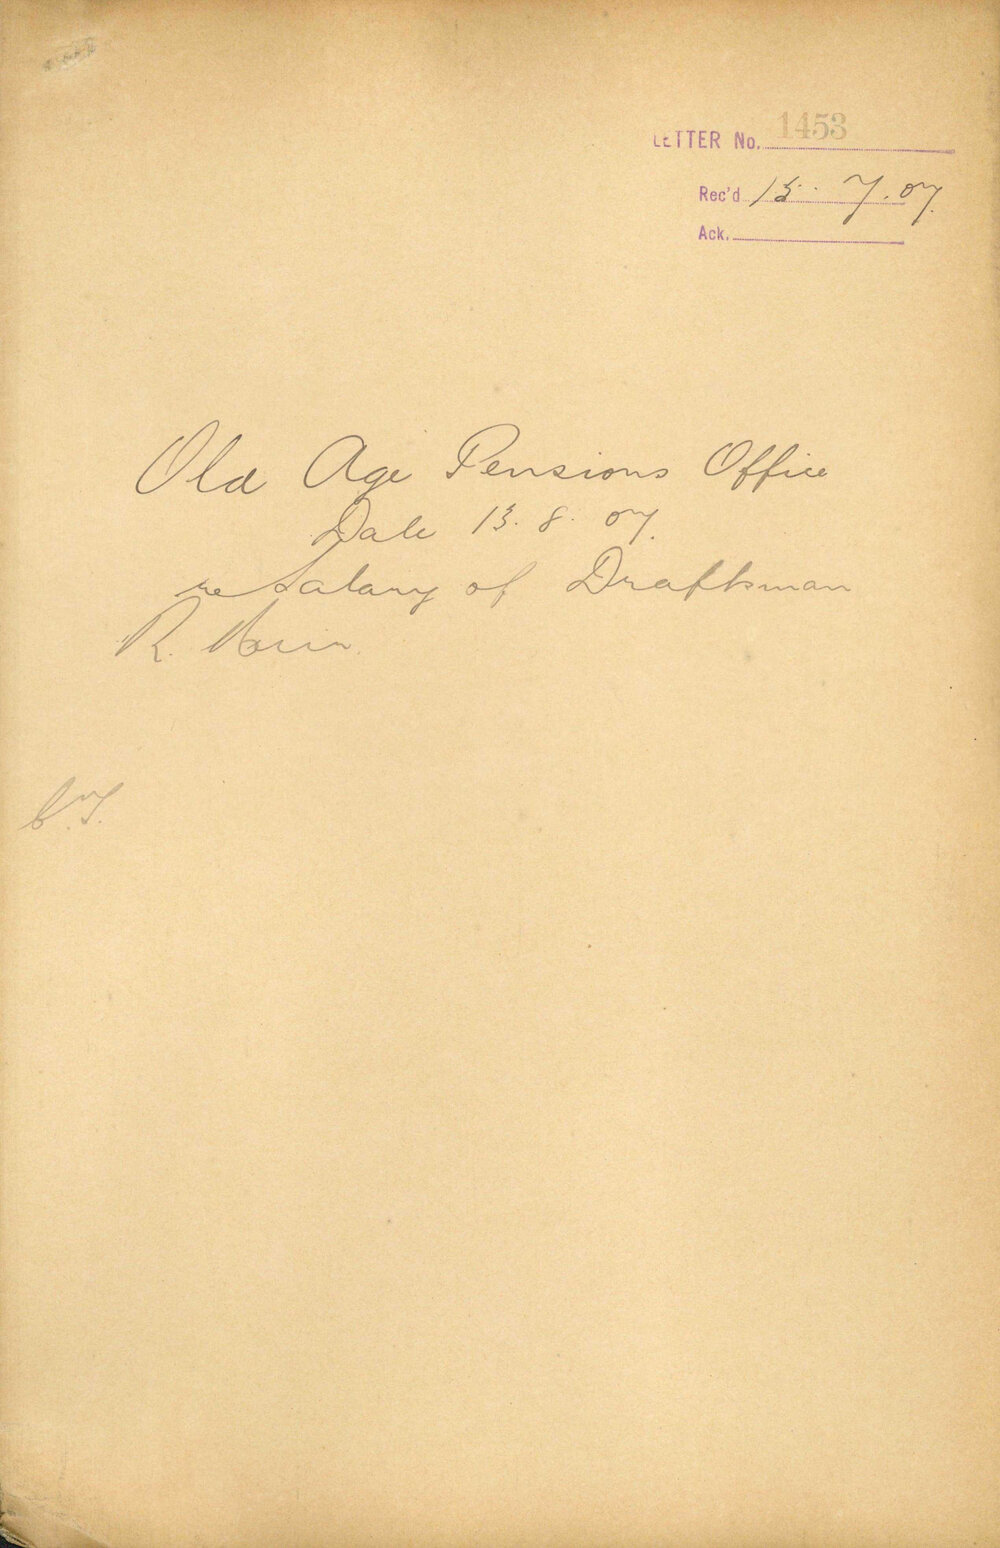 LETTER No. 1453
Rec'd 15. 7. 07.
Ack.
Old Age Pensions Office
Date 13. 8. 07.
re Salary of Draftsman
R.